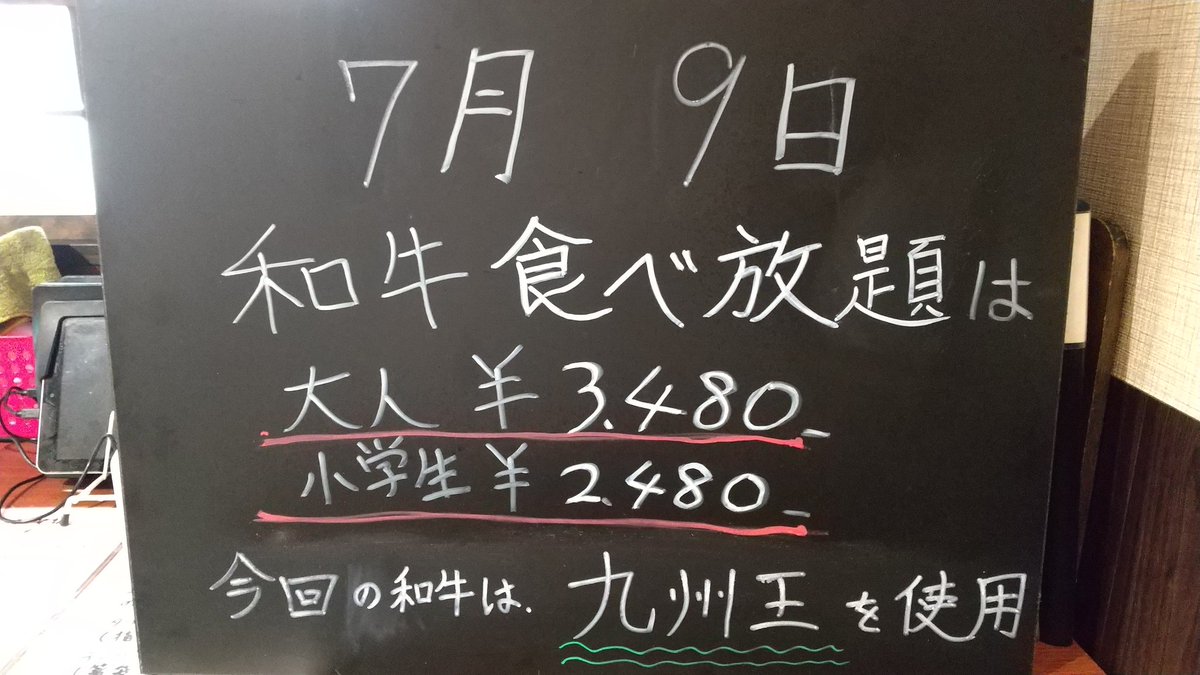 7月 9日
和牛食べ放題は
大人 ¥3.480_
小学生 ¥2.480_
今回の和牛は、九州王を使用